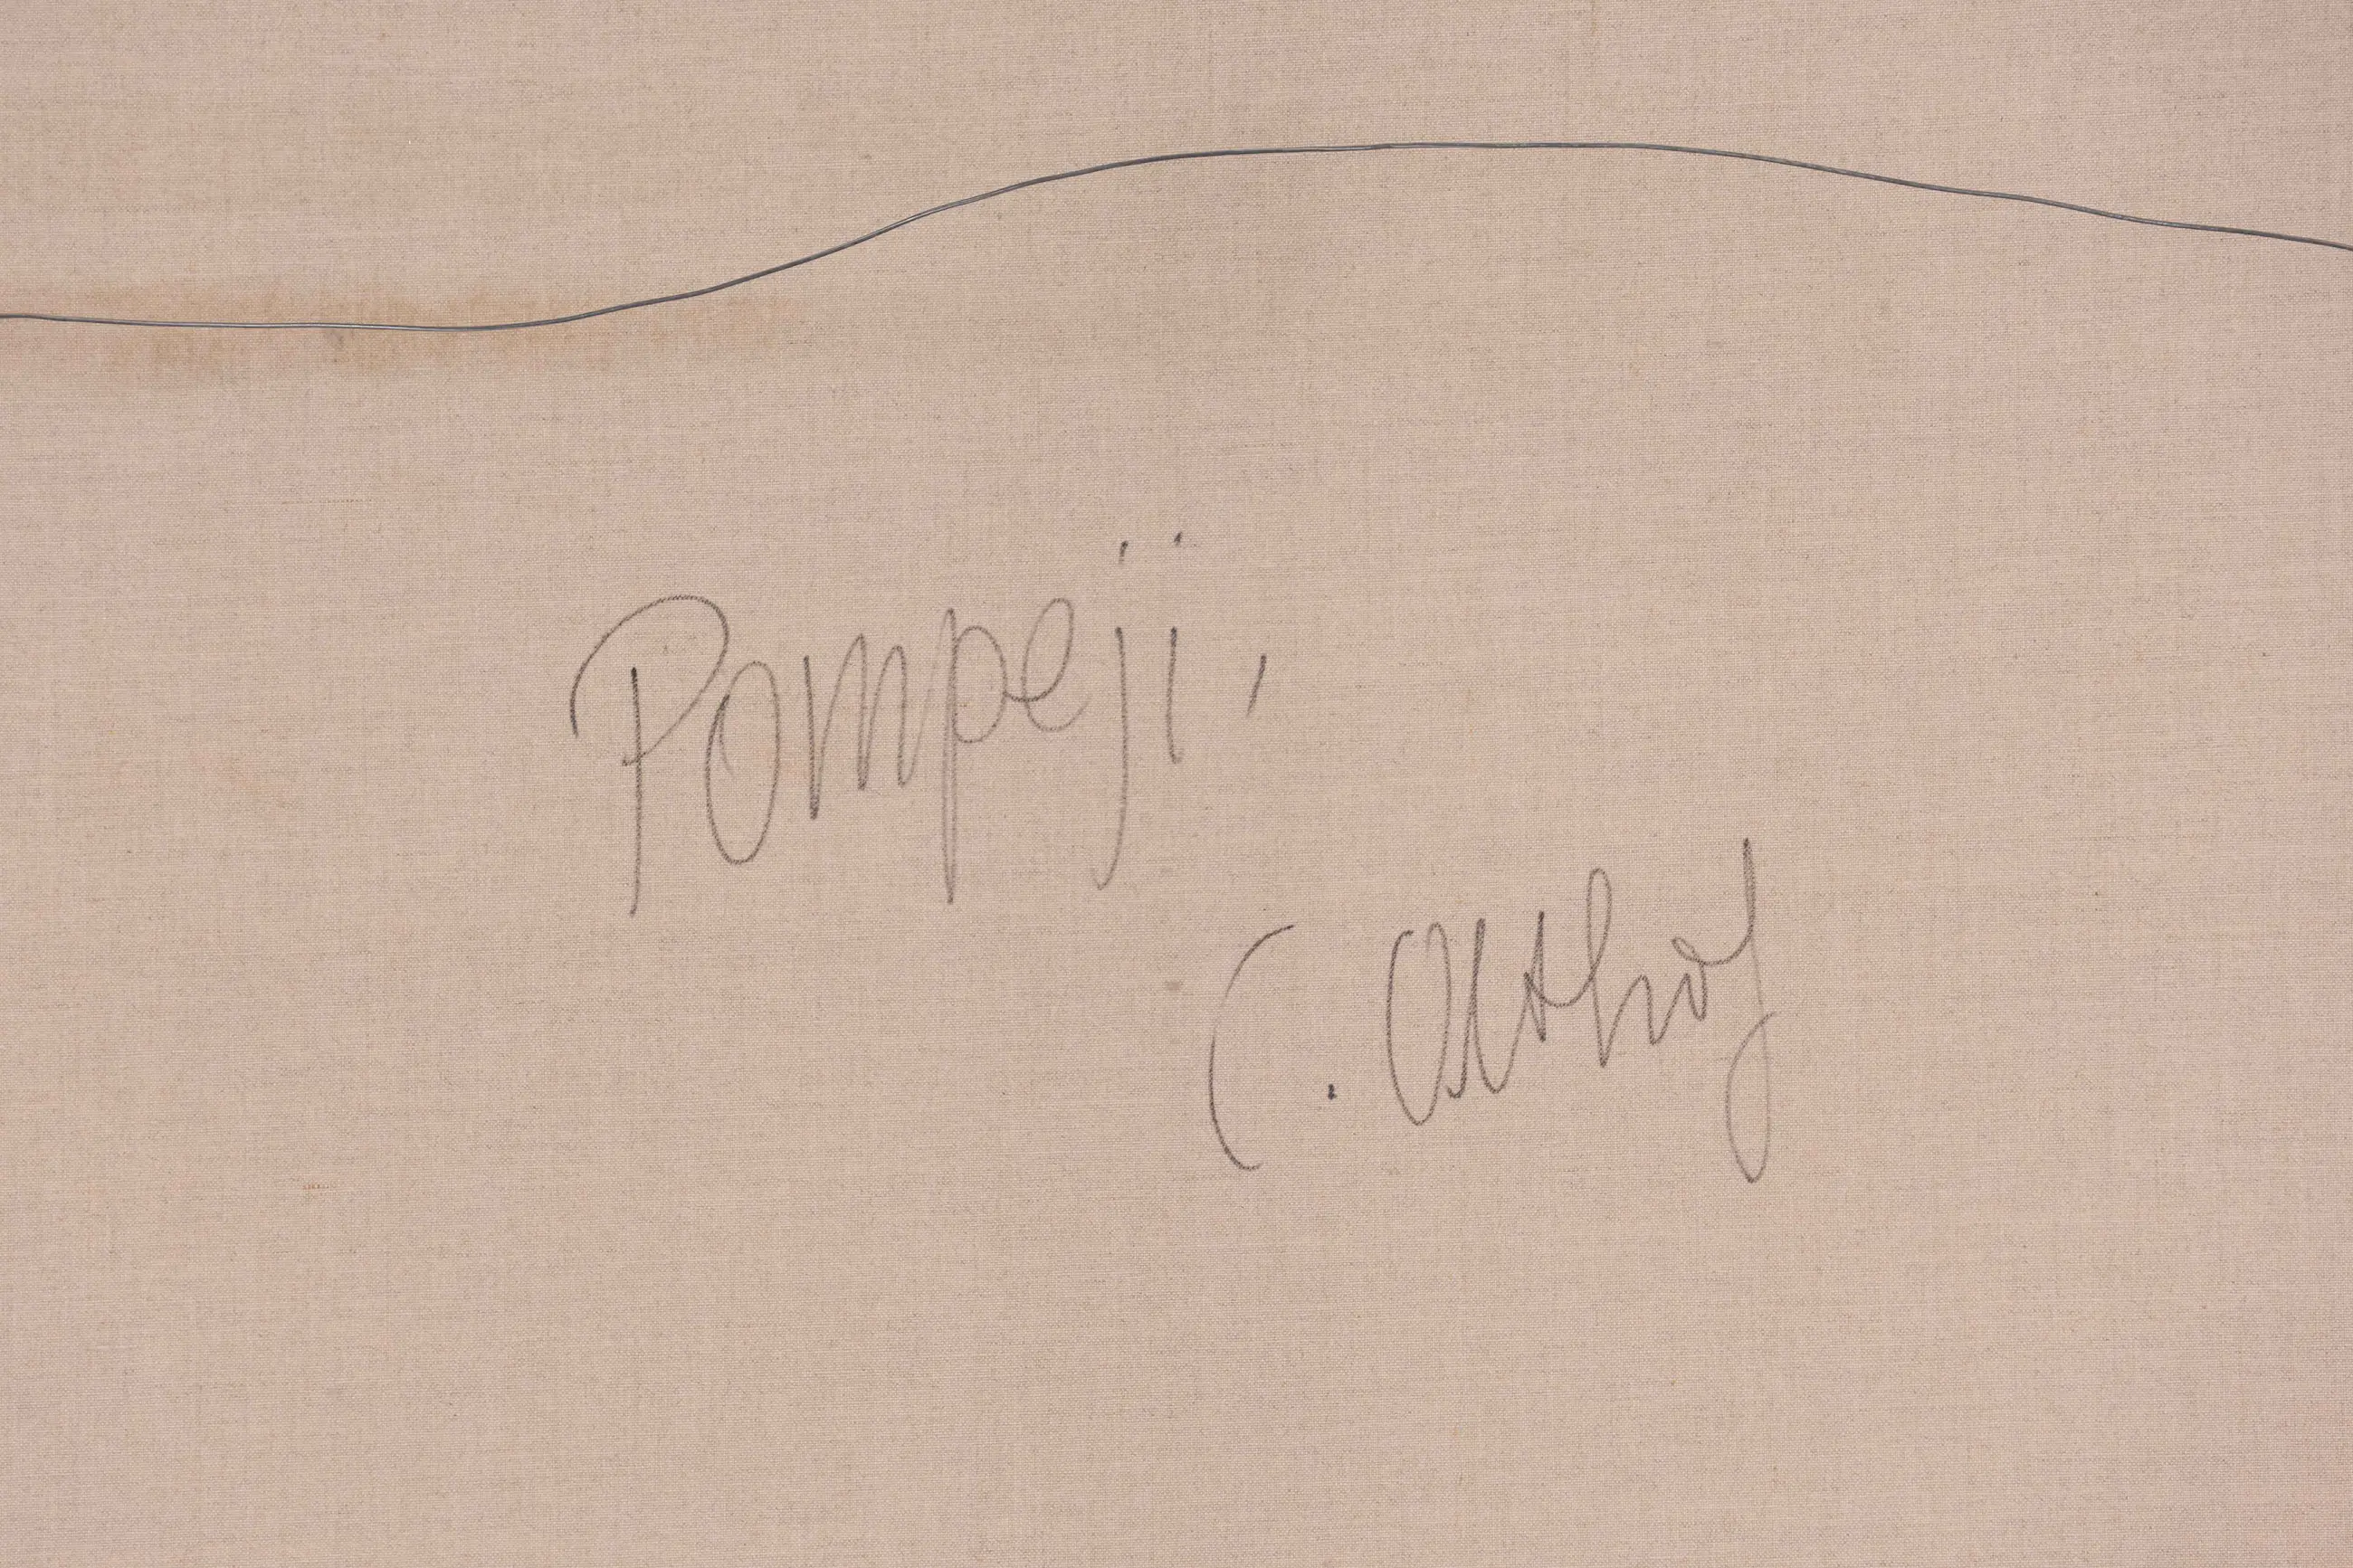 Pompeji,
C. Althof